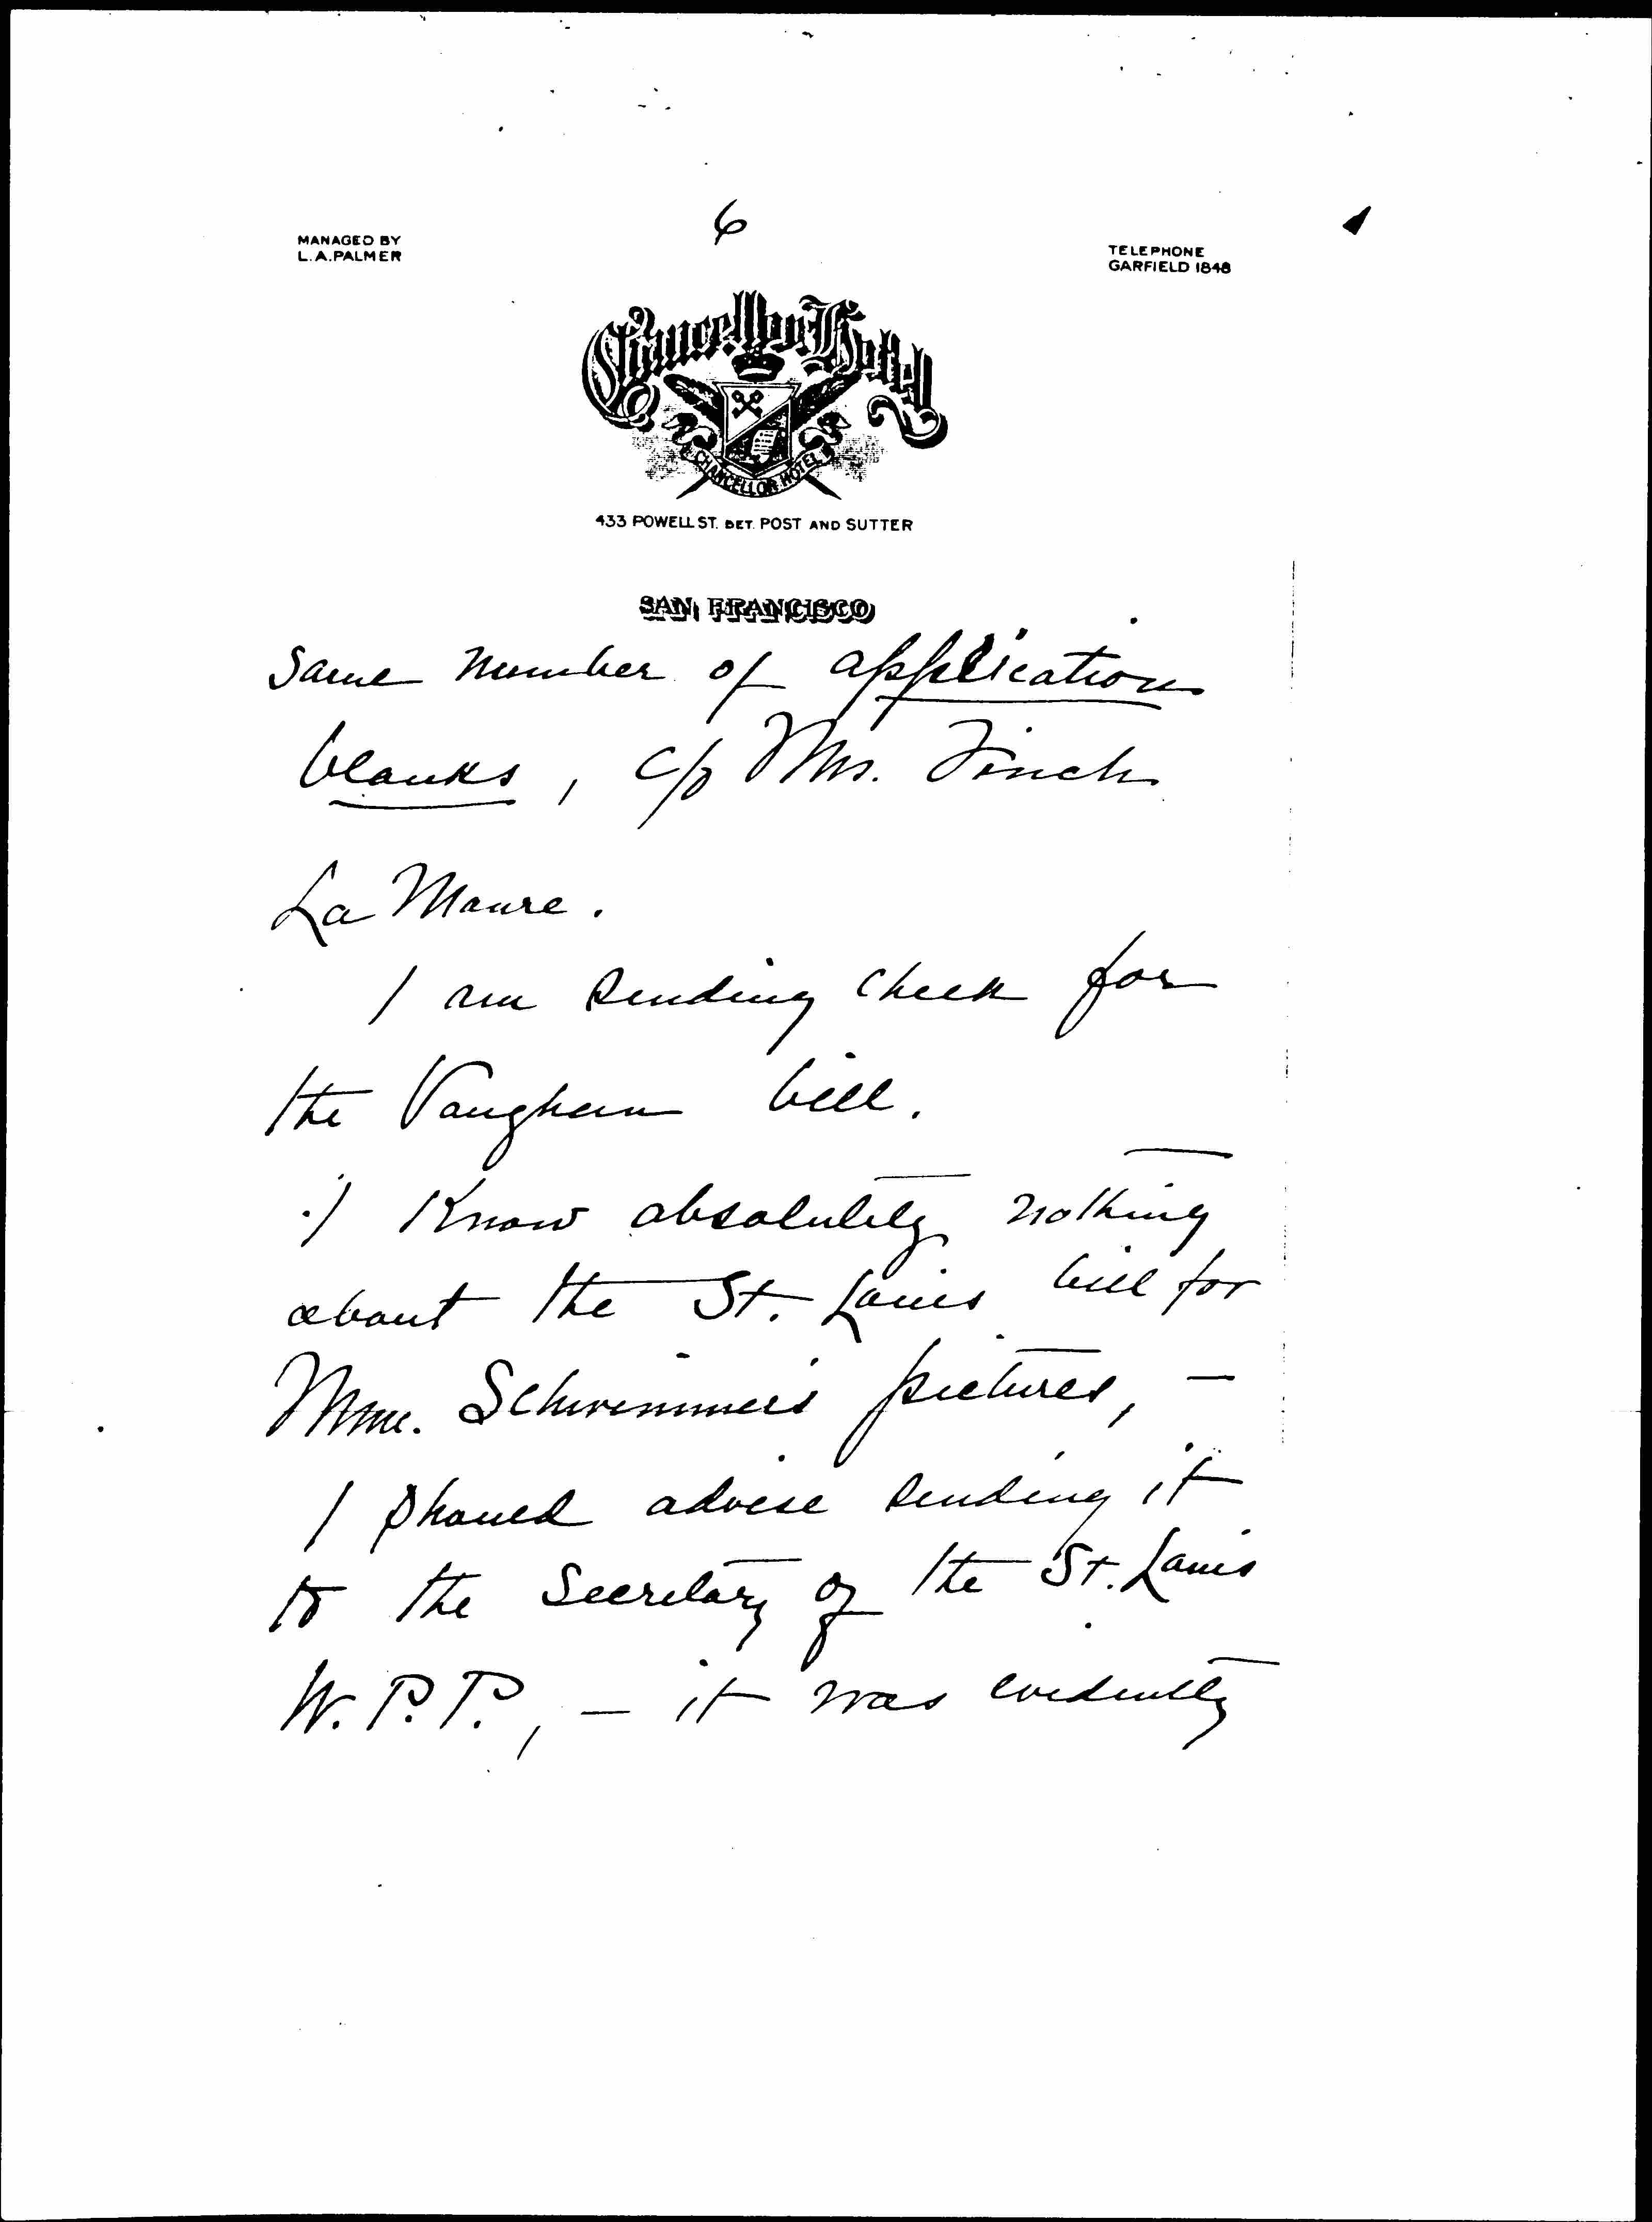 6
MANAGED BY
L.A.PALMER
TELEPHONE
GARFIELD 1848
Chancellor Hotel
CHANCELLOR HOTEL
433 POWELL ST. BET. POST AND SUTTER
SAN FRANCISCO
Same number of application
blanks, c/o Mrs. Finch
La Moure.
I am sending check for
the Vaughan bill.
I know absolutely nothing
about the St. Louis bill for
Mme. Schwimmer's pictures, -
I should advise sending it
to the Secretary of the St. Louis
W.P.P., - it was evidently